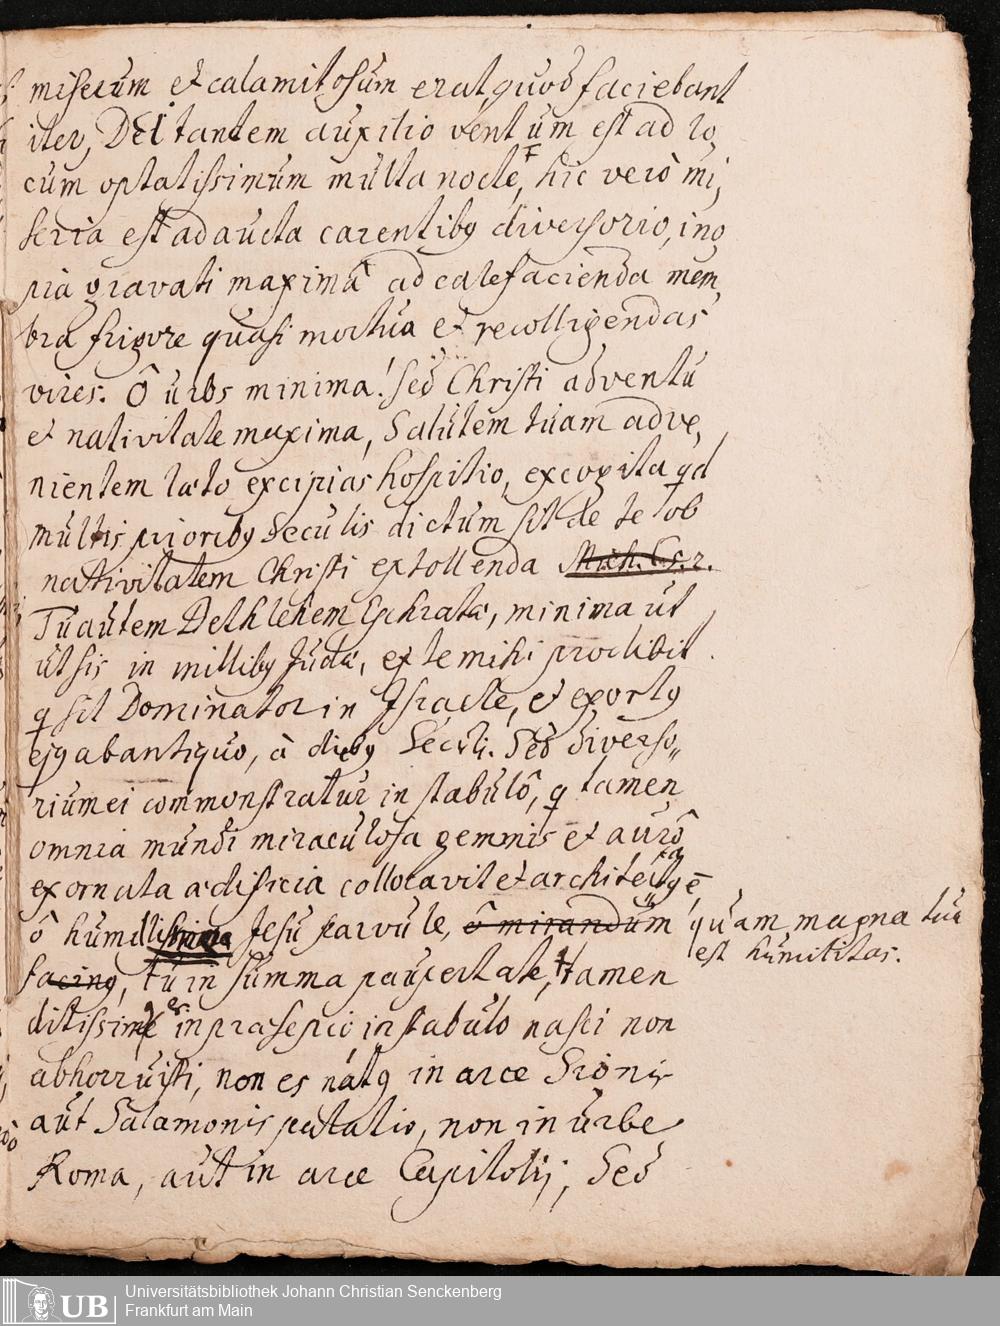 miserum et calamitosum erat, quod faciebant
iter, DEI tandem auxilio ventum est ad lo,
cum optatissimum multa nocte, hic vero mi,
seria est adaucta carentibꝰ diversorio, ino
pia gravati maximâ ad calefacienda mem,
bra frigore quasi mortua et recolligendas
vires. Ô urbs minima! sed Christi adventu
et nativitate maxima, Salutem tuam adve,
nientem læto excipias hospitio, excogita qd
multis prioribꝰ Seculis dictum sit de te ob
nativitatem Christi extollenda Mich. C. 5. 2.
Tu autem Bethlehem Ephrata, minima ut
ut sis in millibꝰ Juda, ex te mihi prodibit
q sit Dominator in Israele, et exortꝰ
ejꝰ ab antiquo, à diebꝰ Seculi. Sed diverso,,
rium ei commonstratur in stabulô, q tamen
omnia mundi miraculosa gemmis et aurô
exornata ædificia collocavit et architectꝰ ē
ô humillissime Jesu parvule, ô mirandum quam magna tua
est humilitas.
facinꝰ, tu in summa paupertate, tamen
ditissimꝰ es in præsepio in stabulo nasci non
abhorruisti, non es natꝰ in arce Sionis
aut Salamonis palatio, non in urbe
Roma, aut in arce Capitolij, Sed
UB
Universitätsbibliothek Johann Christian Senckenberg
Frankfurt am Main